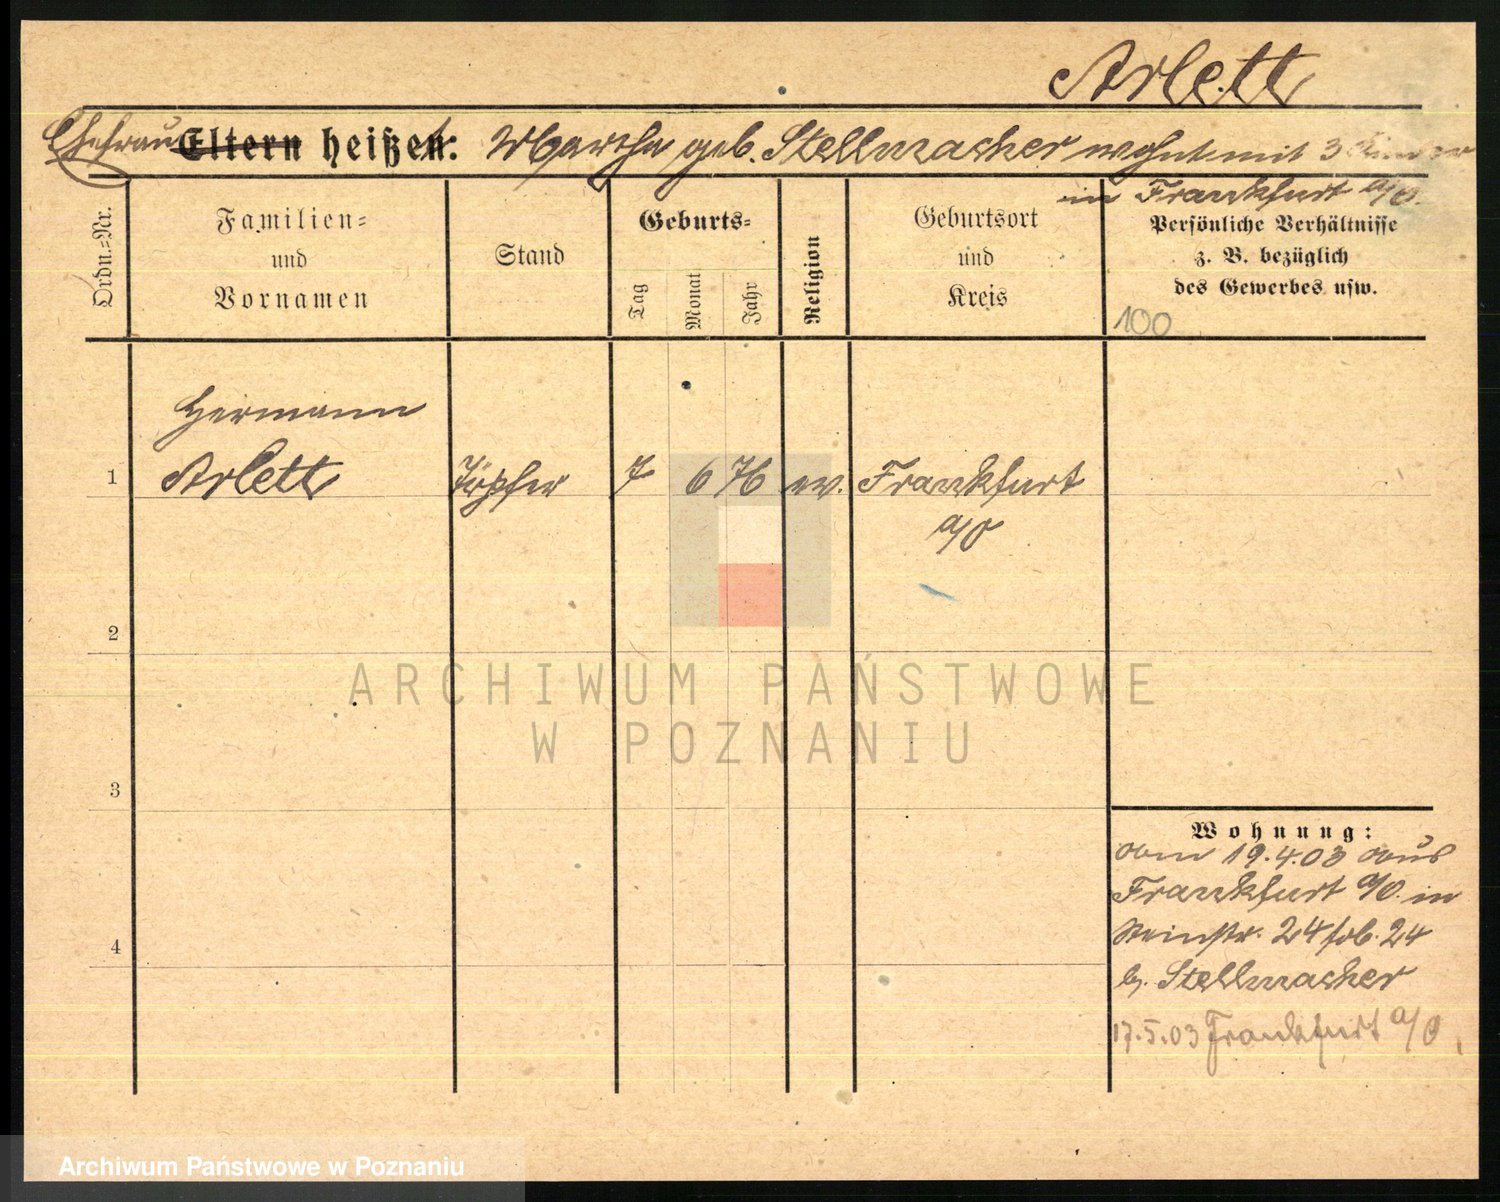 Arlett
Ehefrau Eltern heißen: Martha geb. Stellmacher wohnt mit 3 Kinder
in Frankfurt a/O.
Ordn.=Nr.
Familien=
und
Vornamen
Stand
Geburts=
Tag
Monat
Jahr
Religion
Geburtsort
und
Kreis
Persönliche Verhältnisse
z. B. bezüglich
des Gewerbes usw.
100
Hermann
1 Arlett Töpfer 7 6 76 ev. Frankfurt
a/O
2
ARCHIWUM PAŃSTWOWE
W POZNANIU
3
Wohnung:
19.4.03 aus
Frankfurt a/O. in
Steinstr. 24 24
b. Stellmacher
17.5.03 Frankfurt a/O
4
Archiwum Państwowe w Poznaniu